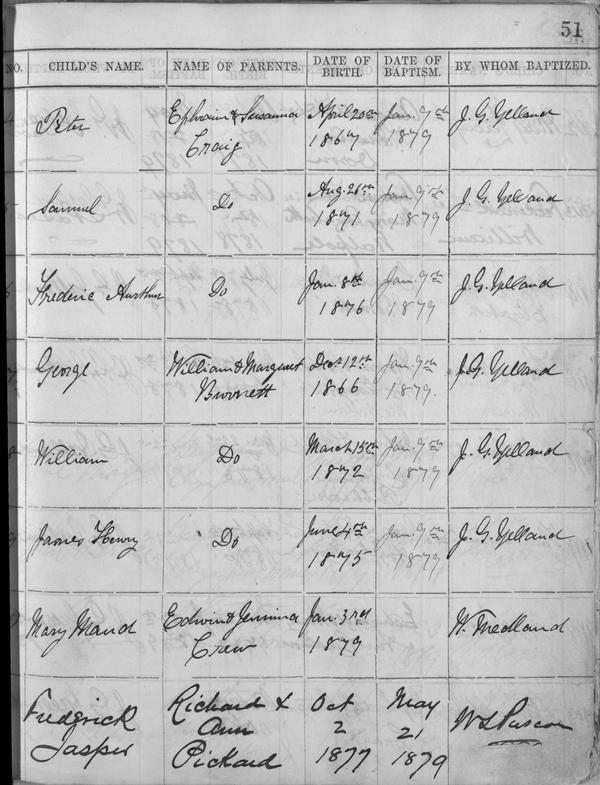 51
NO. CHILD'S NAME. NAME OF PARENTS. DATE OF BIRTH. DATE OF BAPTISM. BY WHOM BAPTIZED.
Peter Ephraim & Susanna April 20th Jan. 9th J. G. Yelland
Craig 1867 1879
Samuel Do Aug. 26th Jan 9th J. G. Yelland
1871 1879
Frederic Aurthur Do Jan. 8th Jan. 9th J. G. Yelland
1876 1879
George William & Margaret Dec 12th Jan. 9th J. G. Yelland
Burnett 1866 1879.
William Do March 15th Jan. 9th J. G. Yelland
1872 1879
James Henry Do June 4th Jan. 9th J. G. Yelland
1875 1879
Mary Maud Edwin & Jemima Jan. 3rd W. Medland
Crew 1879
Fredrick Richard & Oct May
Jasper Ann 2 21
Pickard 1877 1879